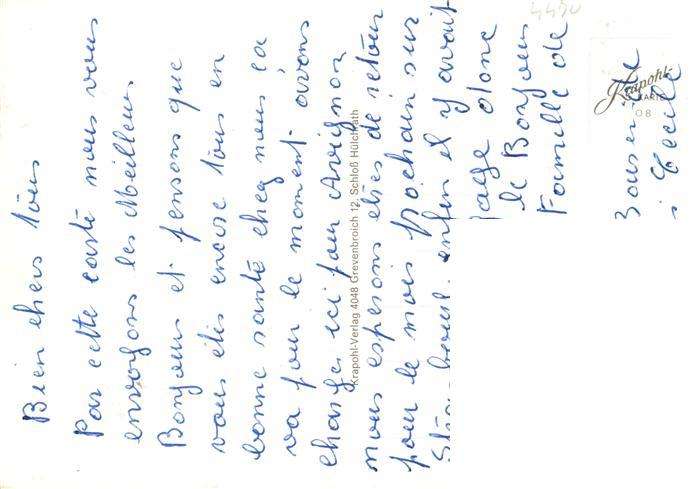 Bien chers tous
Par cette carte nous vous
envoyons les Meilleurs
Bonjours et pensons que
vous êtes encore tous en
bonne santé chez nous ça
va pour le moment avons
chargé ici pour Avignon
nous esperons êtres de retour
pour le mois prochain sur
enfin il y avait
donc
le Bonjour
Famille de
Cecile
Krapohl-Verlag 4048 Grevenbroich 12, Schloß Hülchrath
Krapohl-
KARTE
08
4490